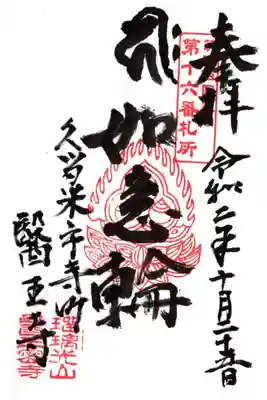 奉拝
第十六番札所
令和二年十月二十五日
如意輪
久留米市寺町
醫王寺
瑠璃光山
醫王寺